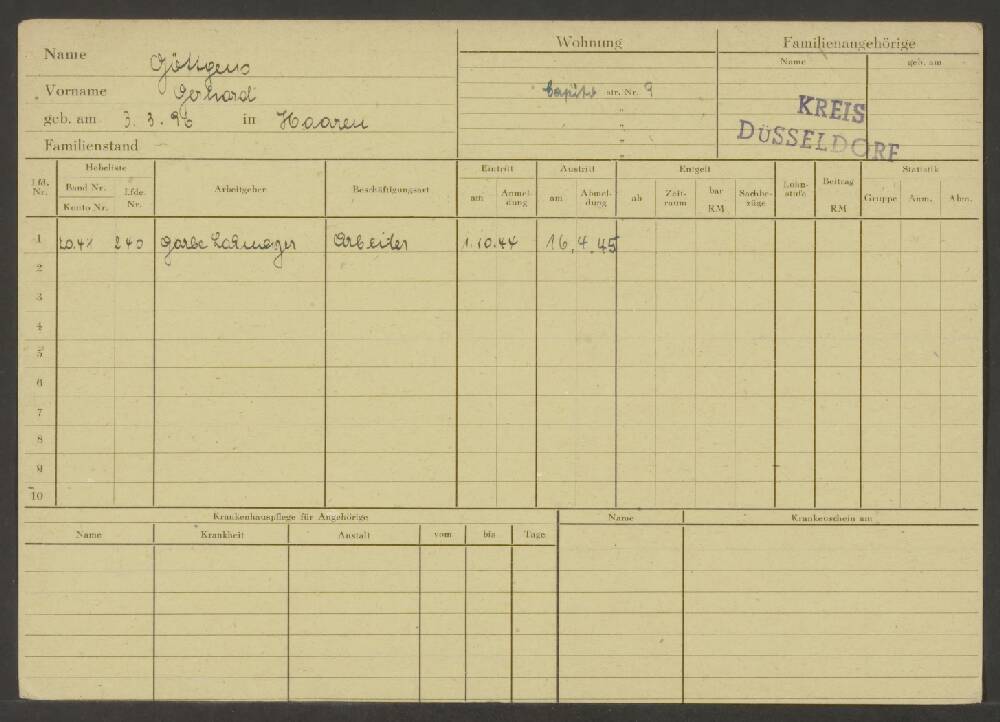 Name Göttgens
Vorname Gerhard
geb. am 3. 3. 96 in Haaren
Familienstand
Wohnung
str. Nr. 9
"
"
"
Familienangehörige
Name geb. am
KREIS
DÜSSELDORF
Lfd. Nr. Hebeliste Arbeitgeber Beschäftigungsart Eintritt Austritt Entgelt Lohnstufe Beitrag RM Statistik
Band Nr. Konto Nr. Lfde. Nr. am Anmeldung am Abmeldung ab Zeitraum bar RM Sachbezüge Gruppe Anm. Abm.
1 240 Garbe Lahmeyer Arbeider 1.10.44 16.4.45
2
3
4
5
6
7
8
9
10
Krankenhauspflege für Angehörige
Name Krankheit Anstalt vom bis Tage
Name Krankenschein am